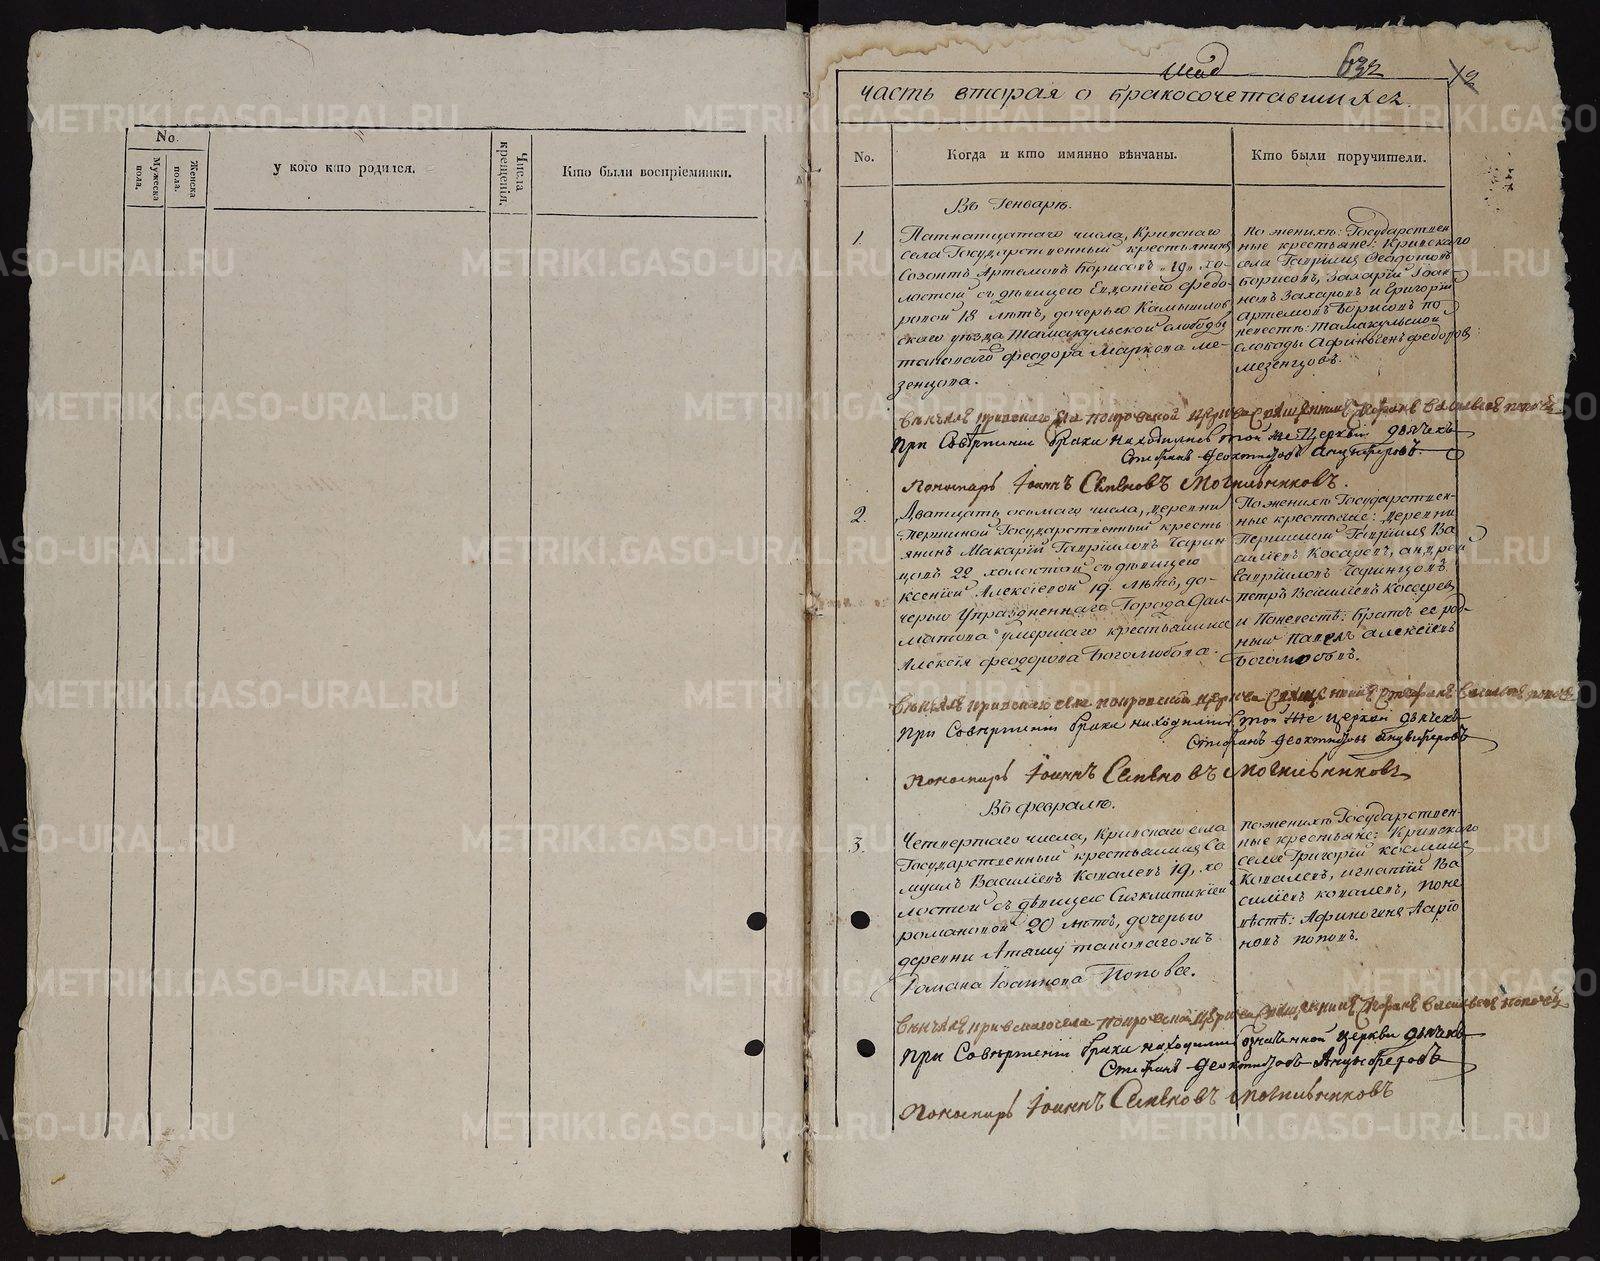 No.
Мужеска пола.
Женска пола.
У кого кто родился.
Числа крещенія.
Кто были воспріемники.
632
часть вторая о бракосочетавшихся.
No.
Когда и кто имянно вѣнчаны.
Кто были поручители.
Въ Генварѣ.
1.
Патнатцатаго числа, Кривскаго
села Государственный крестьянинъ
Созонтъ Артемовъ Борисовъ 19 хо-
лостой съ дѣвицею Евдокіею Федо-
ровой 18 лѣтъ, дочерью Камышлов
скаго уѣзда Тамакульской слободы
таковаго Феодора Маркова Ме-
зенцова.
По женихѣ: Государствен
ные крестьяне: Кривскаго
села Гавріилъ Феодотовъ
Борисовъ, Захарій Іоан
новъ Захаровъ и Григорій
Артемовъ Борисовъ по
невестѣ: Тамакульской
слободы Афиногенъ Федоров
Мезенцовъ.
Вѣнчалъ Кривскаго села Покровской церкви Священникъ Стефанъ Васильевъ Поповъ
При Совершеніи брака находились той же Церкви дьячекъ
Стефанъ Феоктистовъ Анцыферовъ.
Пономарь Іоаннъ Семеновъ Могильниковъ.
2.
Дватцать осьмаго числа, деревни
Першиной Государственный кресть
янинъ Макарій Гавріиловъ Чарин
цовъ 22 холостой съ дѣвицею
Ксеніей Алексіевой 19 лѣтъ, до-
черью Упраздненнаго Города Дал-
матова умершаго крестьянина
Алексія Феодорова Боголюбова.
По женихѣ Государствен-
ные крестьяне: деревни
Першиной Гавріилъ Ва
силіевъ Косаревъ, Андрей
Гавріиловъ Чаринцовъ
Петръ Василіевъ Косарев
и По невестѣ: братъ ее род-
ный Павелъ Алексіевъ
Боголюбовъ.
Вѣнчалъ Кривскаго села Покровской церкви Священникъ Стефанъ Васильевъ Поповъ
При Совершеніи брака находились той же церкви дьячекъ
Стефанъ Феоктистовъ Анцыферовъ
Пономарь Іоаннъ Семеновъ Могильниковъ
Въ феврале.
3.
Четвертаго числа, Кривскаго села
Государственный крестьянинъ Са
муилъ Василіевъ Ковалевъ 19, хо
лостой съ дѣвицею Сигклитикіей
Романовой 20 лѣтъ, дочерью
деревни таковагожъ
Романа Іоаннова Попова.
по женихѣ Государствен-
ные крестьяне: Кривскаго
села Григорій Космин
Ковалевъ, Игнатій Ва
силіевъ Ковалевъ, по не
вѣстѣ: Афиногенъ Ларіо
новъ Поповъ.
Вѣнчалъ Кривскаго села Покровской церкви Священникъ Стефанъ Васильевъ Поповъ
При Совершеніи брака находились означенной церкви дьячекъ
Стефанъ Феоктистовъ Анцыферовъ
Пономарь Іоаннъ Семеновъ Могильниковъ
METRIKI.GASO-URAL.RU